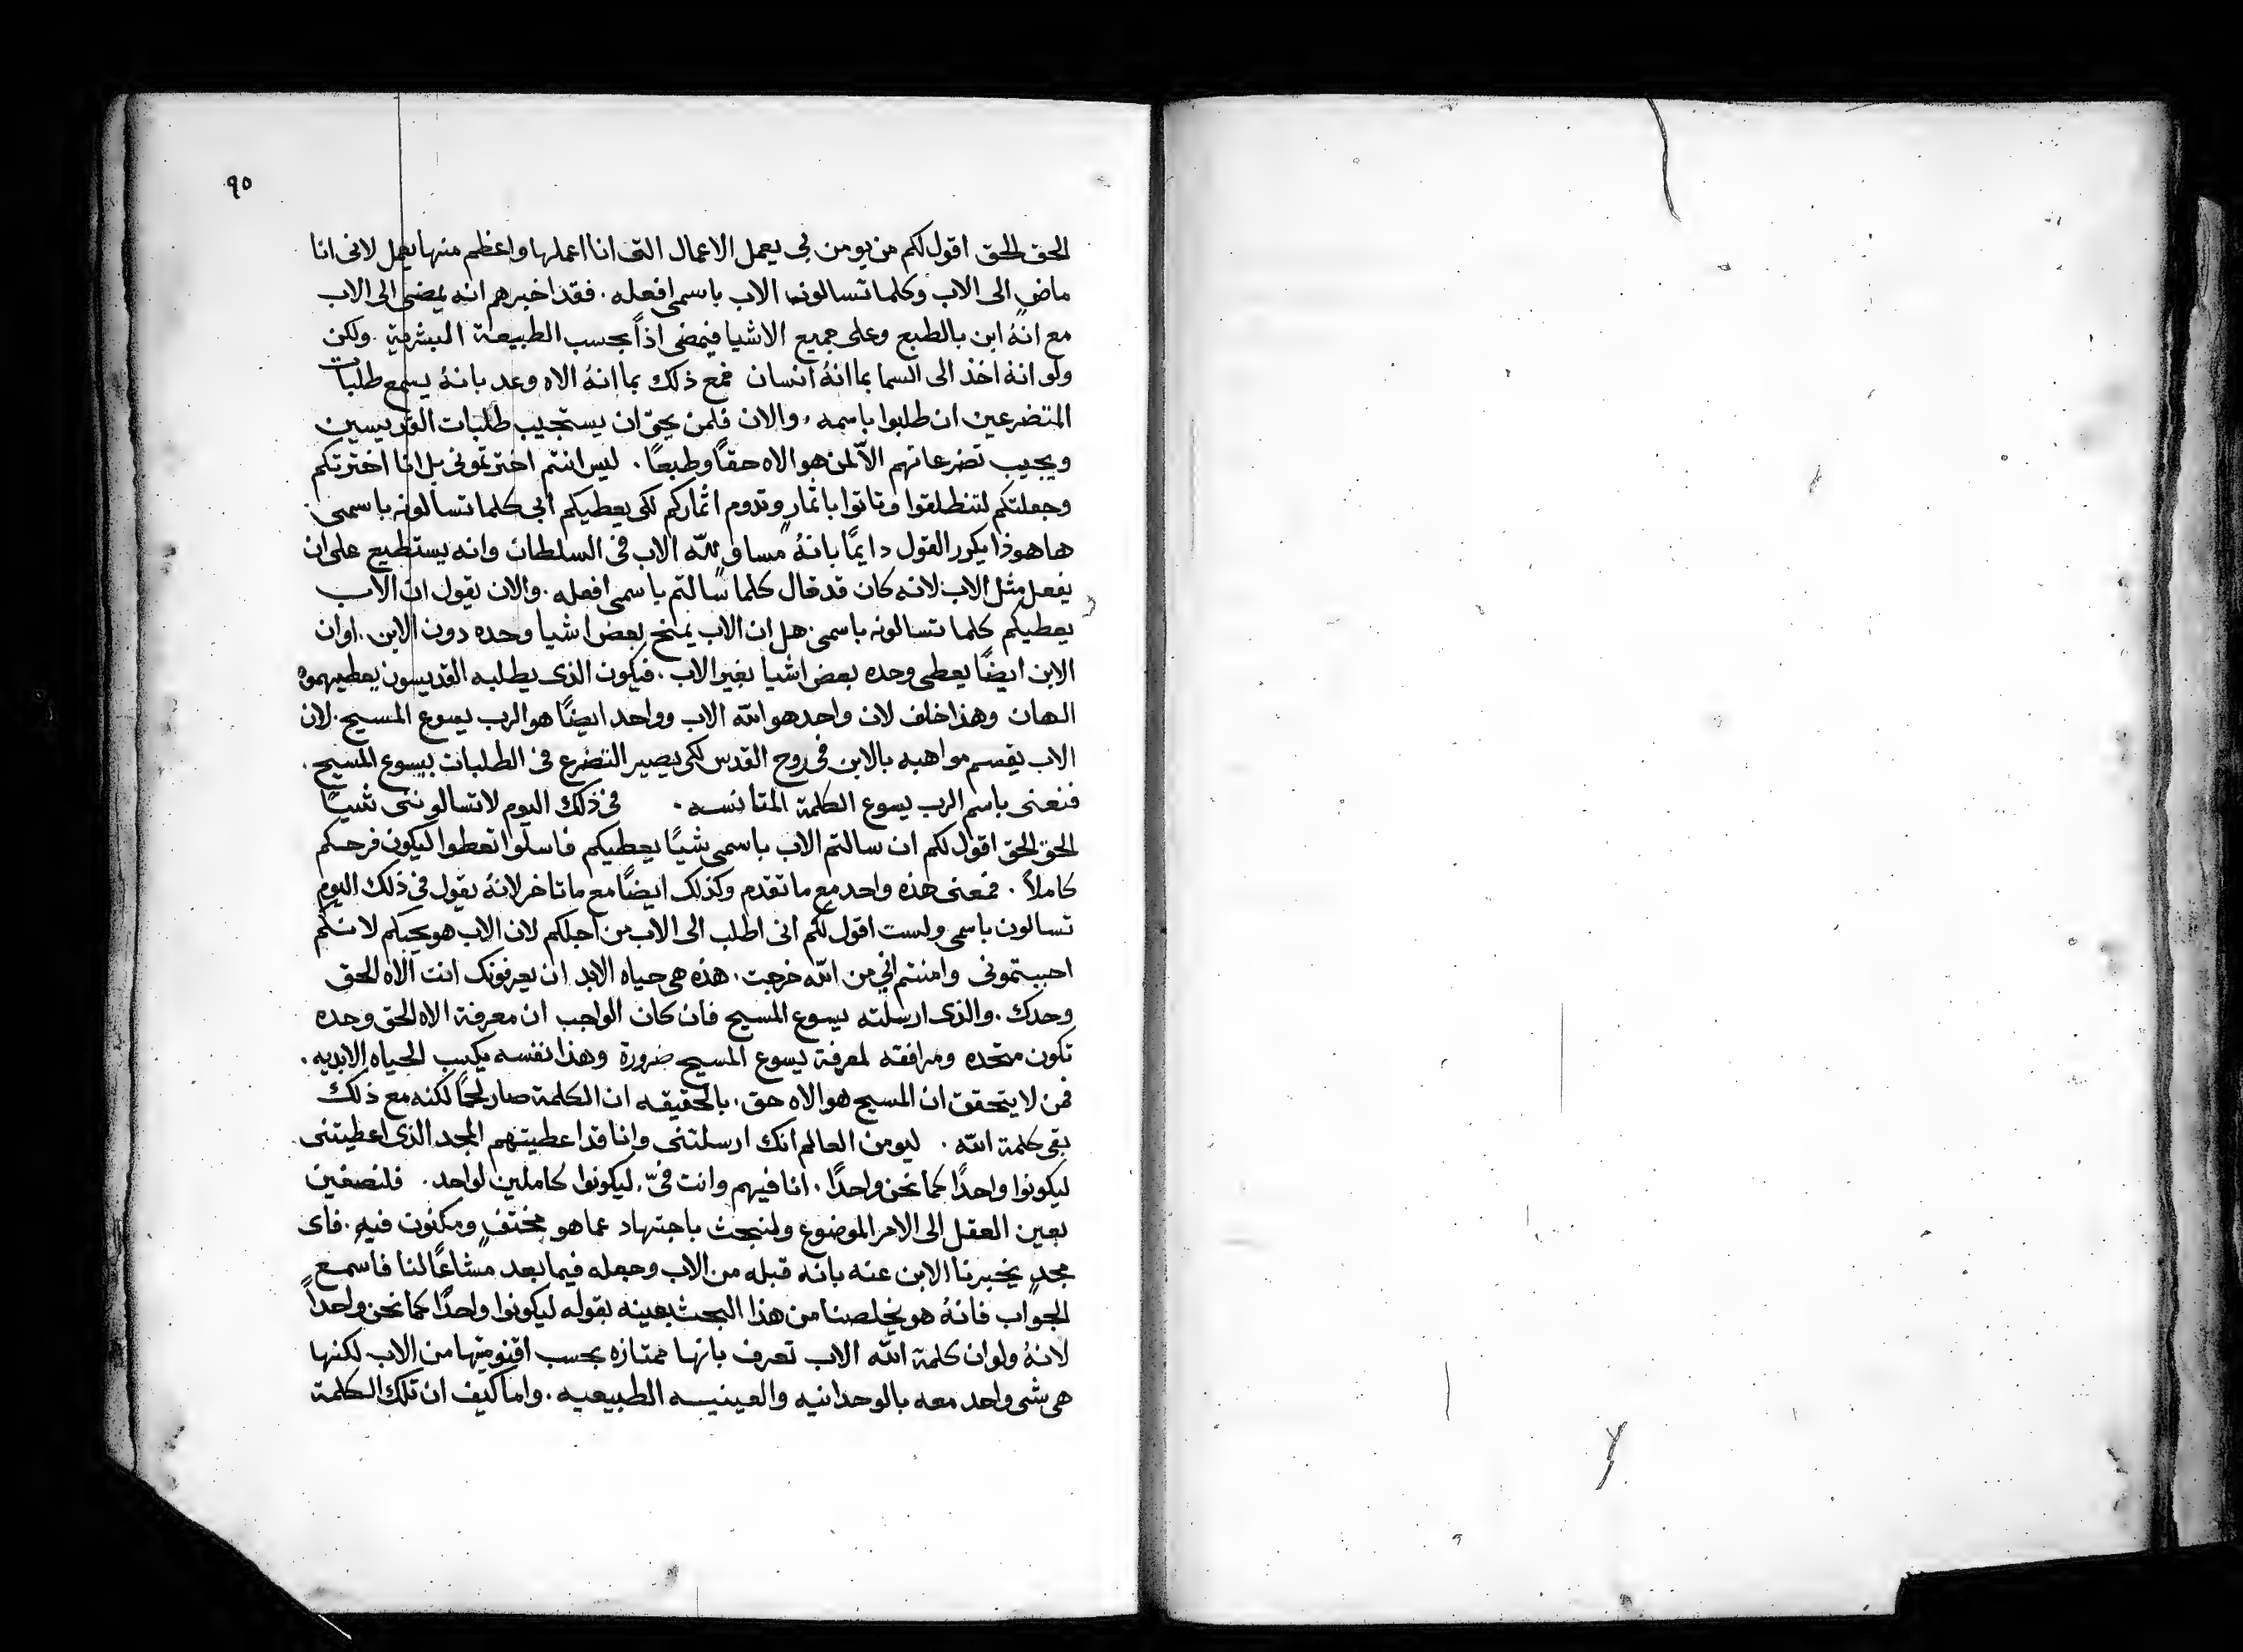 ٩٥
الحق الحق اقول لكم من يومن بي يعمل الاعمال التى انا اعملها واعظم منها يعمل لانى انا
ماضٍ الى الاب وكلما تسالونه الاب باسمى افعله. فقد اخبرهم انه يمضى الى الاب
مع انهُ ابن بالطبع وعلى جميع الاشيا فيمضى اذاً بحسب الطبيعة البشرية. ولكن
ولو انهُ اخذ الى السما بما انهُ انسان فمع ذلك بما انهُ الاه وعد بانهُ يسمع طلبات
المتضرعين ان طلبوا باسمه، والان فلمن يحق ان يستجيب طلبات القديسين
ويجيب تضرعاتهم الاّ لمن هو الاه حقاً وطبعًا. ليس انتم اخترتمونى بل انا اخترتكم
وجعلتكم لتنطلقوا وتاتوا باثمارٍ وتدوم اثماركم لكى يعطيكم ابى كلما تسالونه باسمى.
ها هوذا يكرر القول دايمًا بانهُ مساوٍ للّه الاب فى السلطان وانه يستطيع على ان
يفعل مثل الاب لانه كان قد قال كلما سالتم باسمى افعله. والان يقول ان الاب
يعطيكم كلما تسالونه باسمى. هل ان الاب يمنح بعض اشيا وحده دون الابن. او ان
الابن ايضًا يعطى وحده بعض اشيا بغير الاب. فيكون الذى يطلبه القديسون يعطيهموه
الهان وهذا خلف لان واحد هو اللّه الاب وواحد ايضًا هو الرب يسوع المسيح. لان
الاب يقسم مواهبه بالابن فى روح القدس لكى يصير التضرع فى الطلبات بيسوع المسيح.
فنعنى باسم الرب يسوع الكلمة المتانسه. فى ذلك اليوم لا تسالوننى شيًا
الحق الحق اقول لكم ان سالتم الاب باسمى شيًا يعطيكم فاسلوا تعطوا ليكون فرحكم
كاملاً. فمعنى هذه واحد مع ما تقدم وكذلك ايضًا مع ما تاخر لانهُ يقول فى ذلك اليوم
تسالون باسمى ولست اقول لكم انى اطلب الى الاب من اجلكم لان الاب هو يحبكم لانكم
احببتمونى وامنتم انى من اللّه خرجت. هذه هى حياه الابد ان يعرفونك انت الاه الحق
وحدك. والذى ارسلته يسوع المسيح فان كان الواجب ان معرفة الاه الحق وحده
تكون متحده ومرافقه لمعرفة يسوع المسيح ضرورة وهذا نفسه يكسب الحياه الابديه.
فمن لا يتحقق ان المسيح هو الاه حق. بالحقيقه ان الكلمة صار لحمًا لكنه مع ذلك
بقى كلمة اللّه. ليومن العالم انك ارسلتنى وانا قد اعطيتهم المجد الذى اعطيتنى
ليكونوا واحدًا كما نحن واحدًا. انا فيهم وانت فىّ. ليكونوا كاملين لواحد. فلنصغين
بعين العقل الى الامر الموضوع ولنبحث باجتهاد عما هو مختفٍ ومكنون فيه. فاى
مجدٍ يخبرنا الابن عنه بانه قبله من الاب وجعله فيما بعد مشاعًا لنا فاسمع
الجواب فانهُ هو يخلصنا من هذا البحث بعينه بقوله ليكونوا واحدًا كما نحن واحداً
لانهُ ولو ان كلمة اللّه الاب تعرف بانها ممتازه بحسب اقنوميتها من الاب لكنها
هى شى واحد معه بالوحدانيه والعينيسه الطبيعيه. واما كيف ان تلك الكلمة